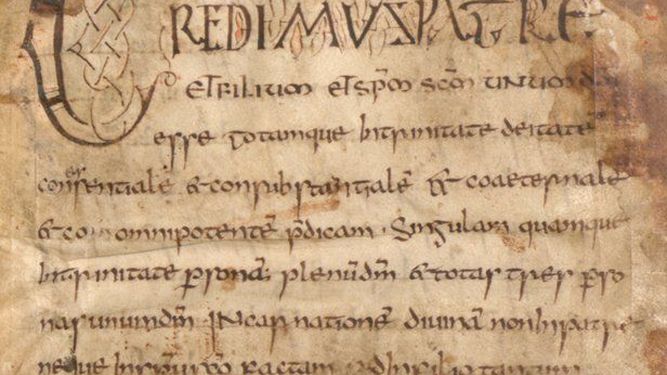 CREDIMUS PATRE
et filium et spm scm unum dm
esse totamque in trinitate deitate
coessentiale & consubstantiale & coaeternale
& co omnipotente pdicam. Singulam quamque
in trinitate personã plenũ dm & totas tres perso
nas unum dm INcarnatione divina non in patre
neque in spu sco factam sed in filio tantum